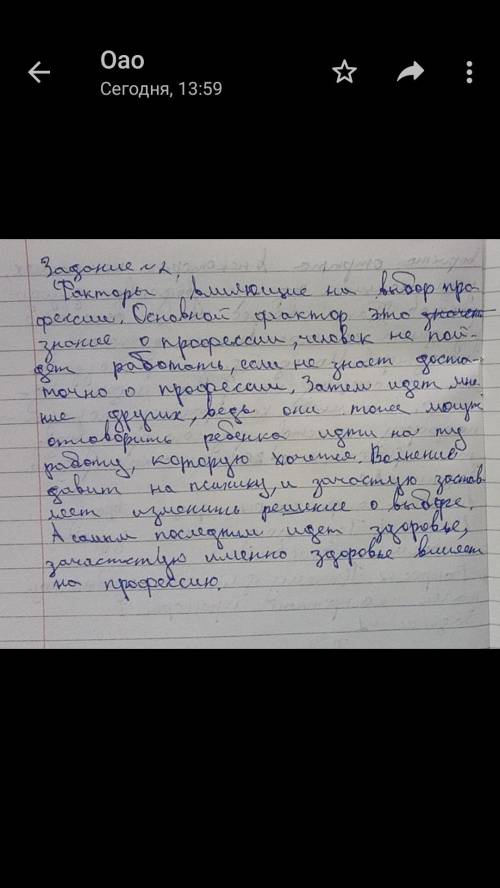 Оао
Сегодня, 13:59
Задание №2.
Факторы, влияющие на выбор про-
фессии. Основной фактор это
знание о профессии, человек не пой-
дет работать, если не знает доста-
точно о профессии. Затем идет мне-
ние других, ведь они тоже могут
отговорить ребенка идти на ту
работу, которую хочется. Волнение
давит на психику, и зачастую застав-
ляет изменить решение о выборе.
А самым последним идет здоровье,
зачастстую именно здоровье влияет
на профессию.